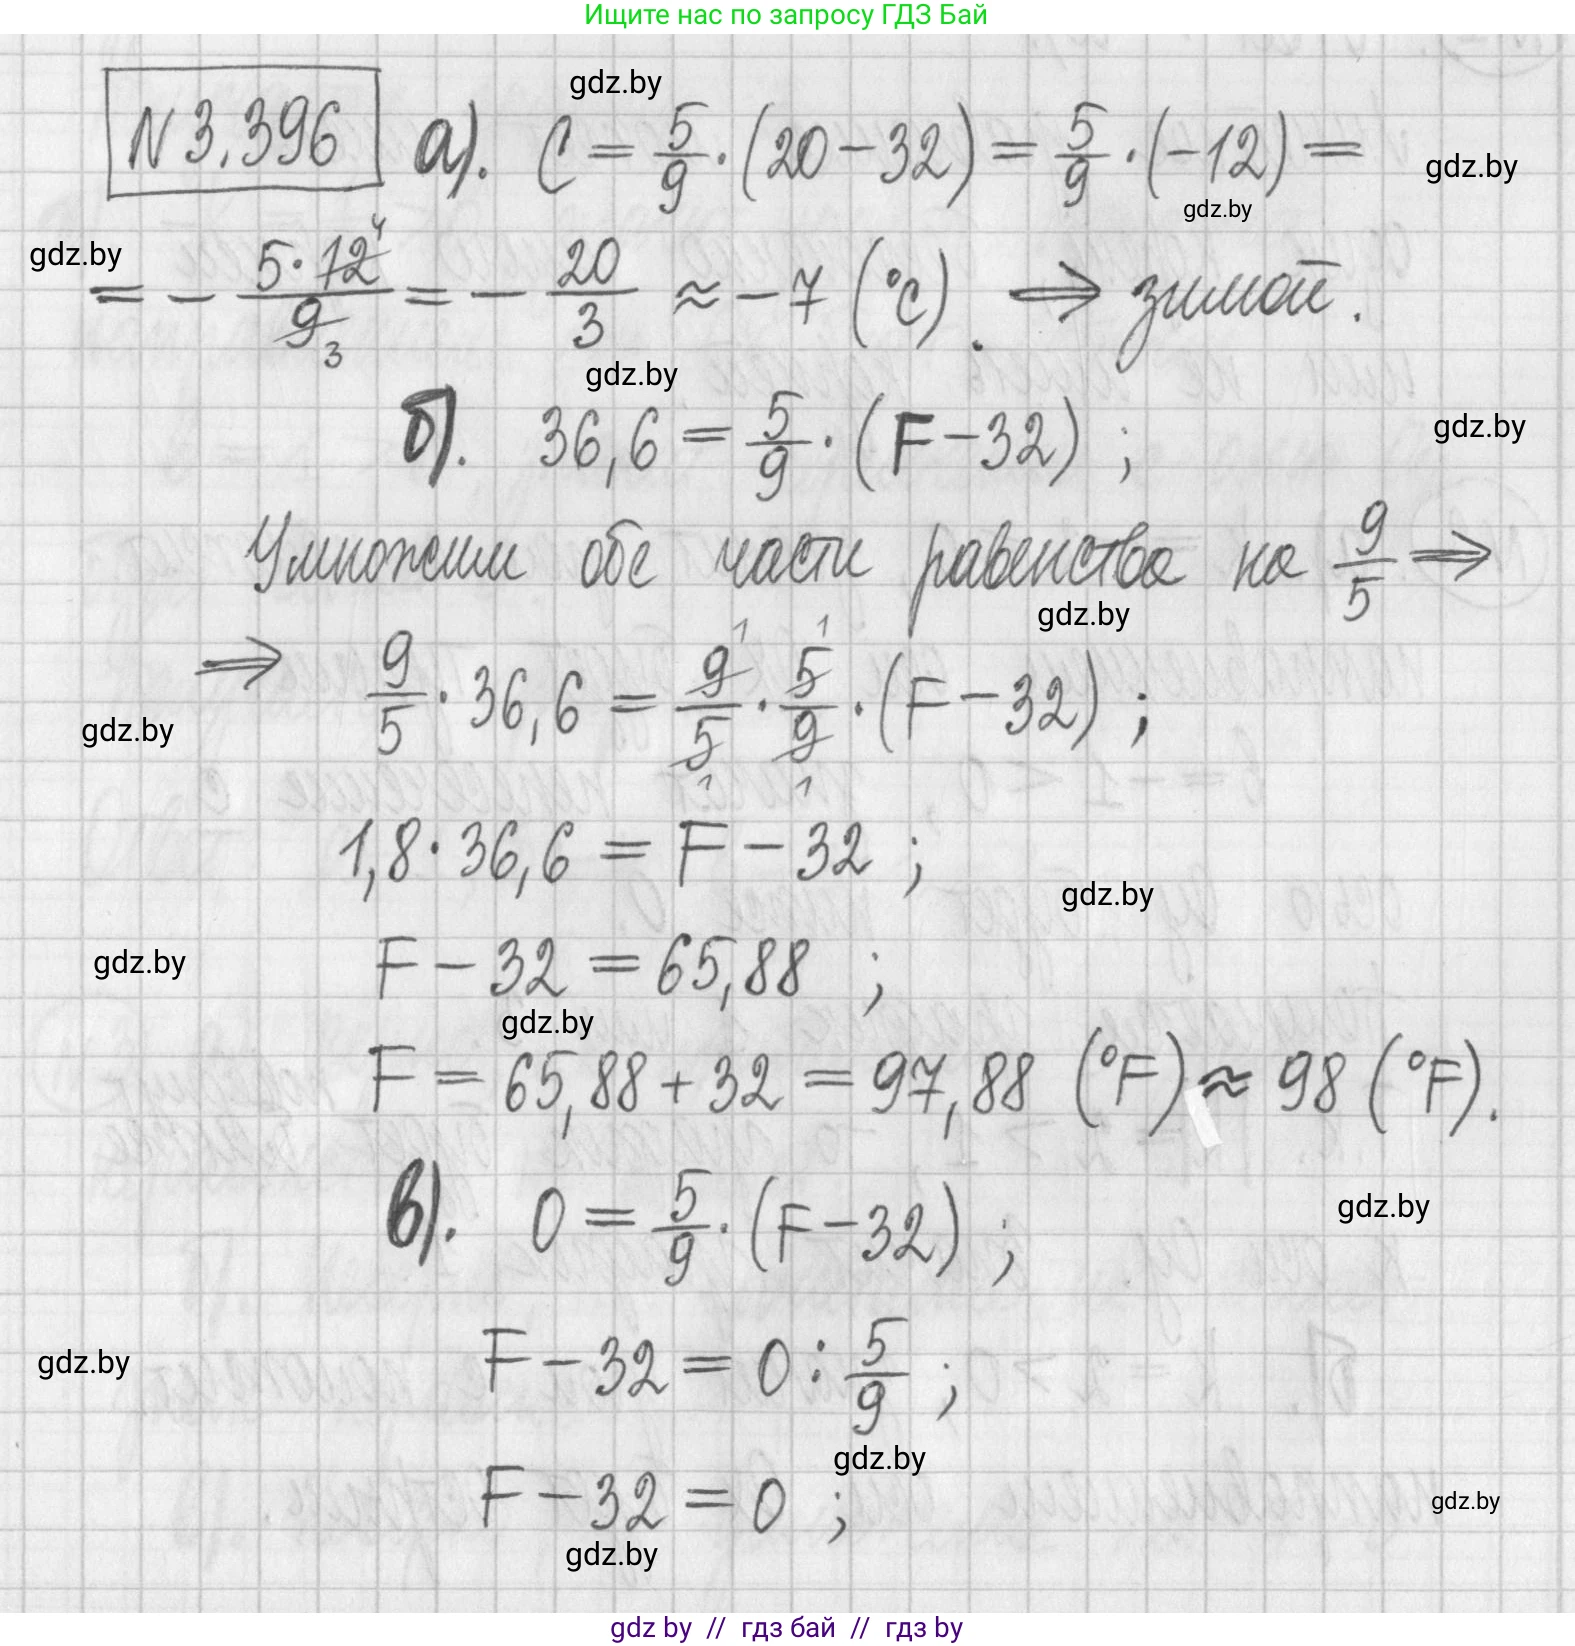 Ищите нас по запросу ГДЗ Бай
gdz.by
N 3.396 а). C = 5/9 · (20 − 32) = 5/9 · (−12) =
gdz.by
gdz.by
gdz.by
= − 5·12/9 = − 20/3 ≈ −7 (°C). ⇒ зимой.
4
3
gdz.by
б). 36,6 = 5/9 · (F − 32) ;
gdz.by
Умножим обе части равенства на 9/5 ⇒
gdz.by
⇒ 9/5 · 36,6 = 9/5 · 5/9 · (F − 32) ;
1 1
1 1
gdz.by
1,8 · 36,6 = F − 32 ;
gdz.by
F − 32 = 65,88 ;
gdz.by
gdz.by
F = 65,88 + 32 = 97,88 (°F) ≈ 98 (°F).
в). 0 = 5/9 · (F − 32) ;
gdz.by
F − 32 = 0 : 5/9 ;
gdz.by
gdz.by
F − 32 = 0 ;
gdz.by
gdz.by
gdz by // гдз бай // гдз by